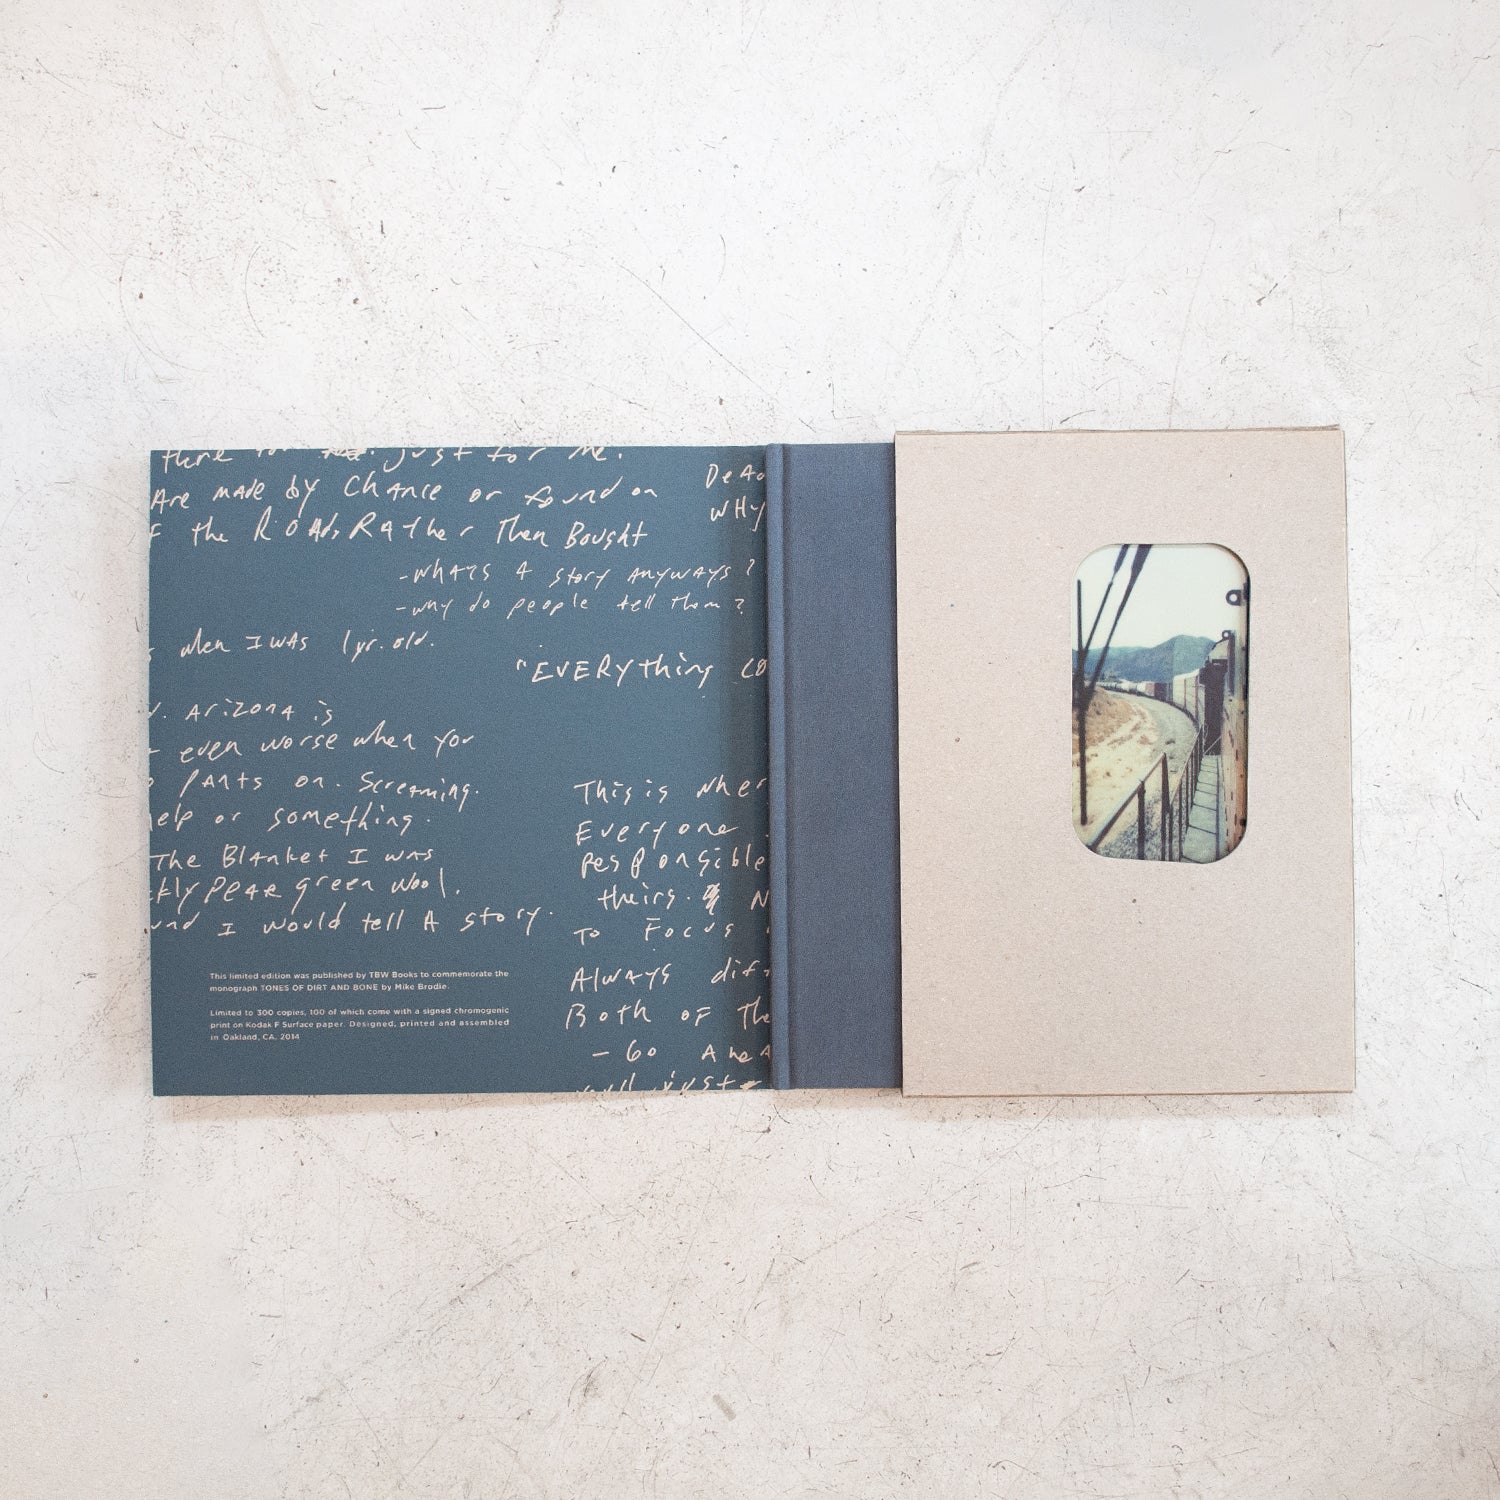 just for me.
Are made by Chance or found on
the Roads, Rather Then Bought
-whats A story anyways?
-why do people tell them?
when I was 1yr. old.
"EVERYthing
Arizona is
even worse when you
PAnts on. Screaming.
or something.
The Blanket I was
PEAR green wool.
I would tell A story.
WHY
This is
Everyone
Responsible
theirs.
To Focus
Always
Both of
- Go
This limited edition was published by TBW Books to commemorate the
monograph TONES OF DIRT AND BONE by Mike Brodie.
Limited to 300 copies, 100 of which come with a signed chromogenic
print on Kodak F Surface paper. Designed, printed and assembled
in Oakland, CA, 2014